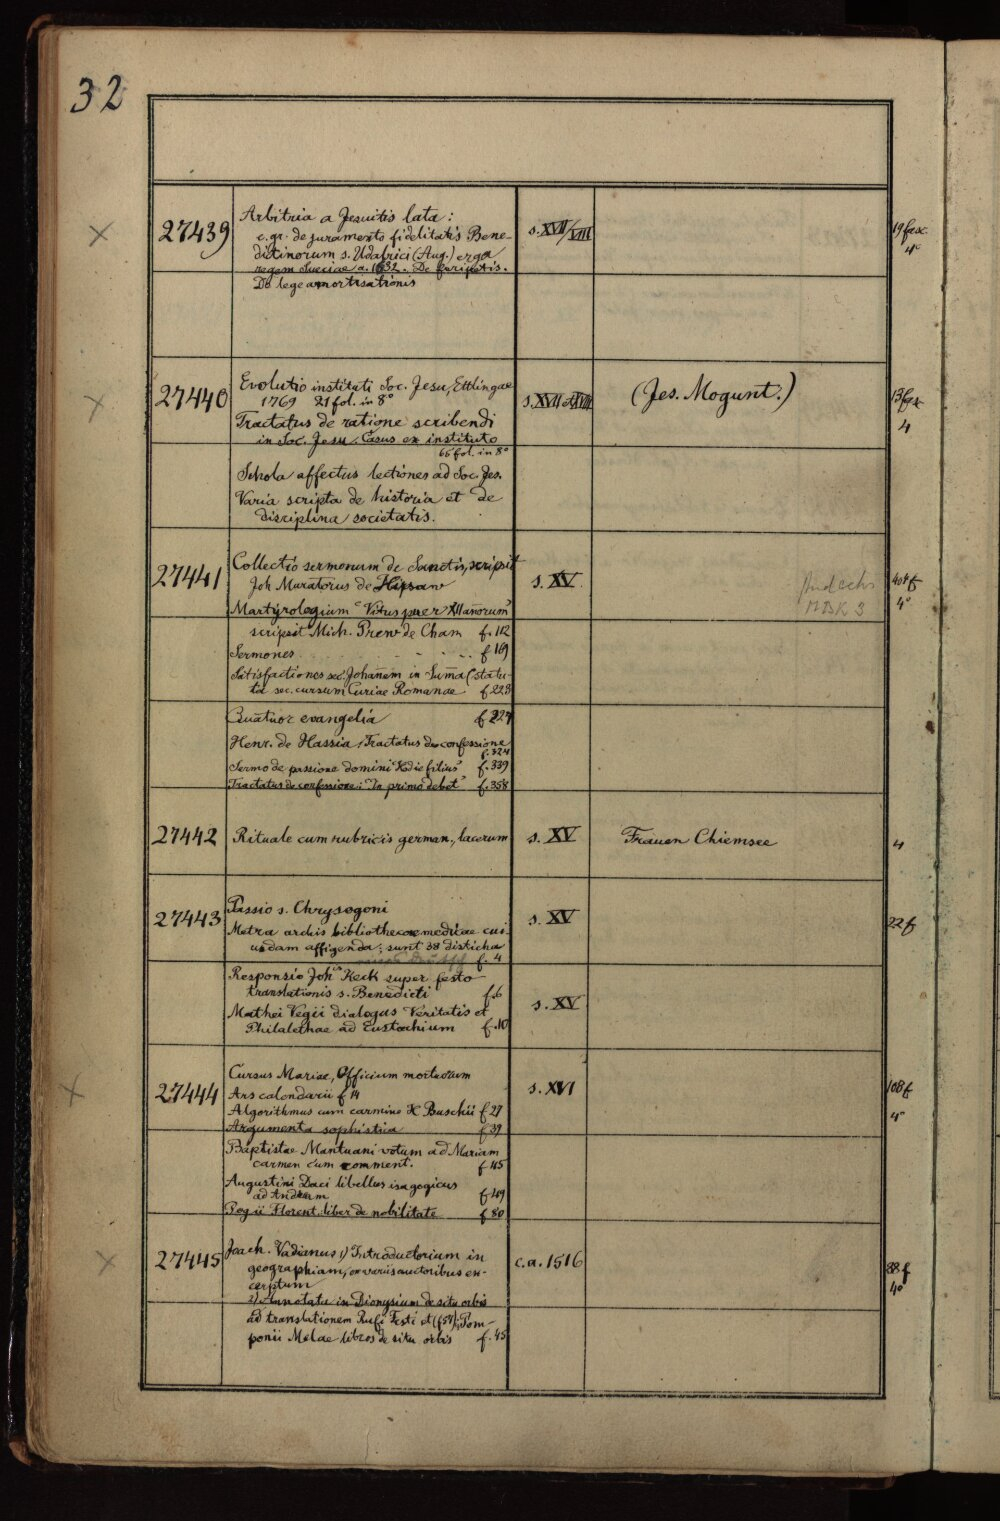 32
27439
Arbitria a Jesuitis lata:
e. gr. de juramento fidelitatis Bene-
dictinorum s. Udalrici (Aug.) erga
regem Sueciae a. 1632. De
De lege amortisationis
s. XVII/VIII
19 fasc.
4°
27440
Evolutio instituti Soc. Jesu, Ettlingae
1769 21 fol. in 8°
Tractatus de ratione scribendi
in Soc. Jesu. Casus ex instituto
66 fol. in 8°
Schola affectus lectiones ad Soc. Jes.
Varia scripta de historia et de
disciplina societatis.
s. XVII et XVIII
(Jes. Mogunt.)
13 fax
4
27441
Collectio sermonum de Sanctis, scripsit
Joh Muratorius de
Martyrologium "Vitus puer XII añorum"
scripsit Mich. Prew de Cham f. 112
Sermones f 169
Satisfactiones sec. Johañem in Suma (statu-
ta sec. cursum Curiae Romanae f 223
Quatuor evangelia f 227
Henr. de Hassia, Tractatus de confessione
f. 324
Sermo de passione domini "Hodie filius" f. 339
Tractatus de confessione: "In primo debet" f. 358
s. XV
Andechs
MBK 3
404 f
4°
27442
Rituale cum rubricis german., lacerum
s. XV
Frauen Chiemsee
4
27443
Passio s. Chrysogoni
Metra archis bibliothecae medicae cui-
usdam affigenda; sunt 38 disticha
f. 4
Responsio Joh<sup>is</sup> Keck super festo
translationis s. Benedicti f. 6
Mathei Vegii dialogus Veritatis et
Philalethae ad Eustachium f. 10
s. XV
s. XV
22 f
27444
Cursus Mariae, Officium mortuorum
Ars calendarii f 14
Algorithmus cum carmine H Buschii f 27
Argumenta sophistica f 39
Baptistae Mantuani votum ad Mariam
carmen cum comment. f 45
Augustini Daci libellus isagogicus
ad Andream f 49
Pogii Florent. liber de nobilitate f 80
s. XVI
108 f
4°
27445
Joach. Vadianus 1) Introductorium in
geographiam, ex variis auctoribus ex-
cerptum
2) Annotata in Dionysium de situ orbis
ad translationem Rufi Festi et (f 57) Pom-
ponii Melae libros de situ orbis f. 45
c.a. 1516
88 f
4°